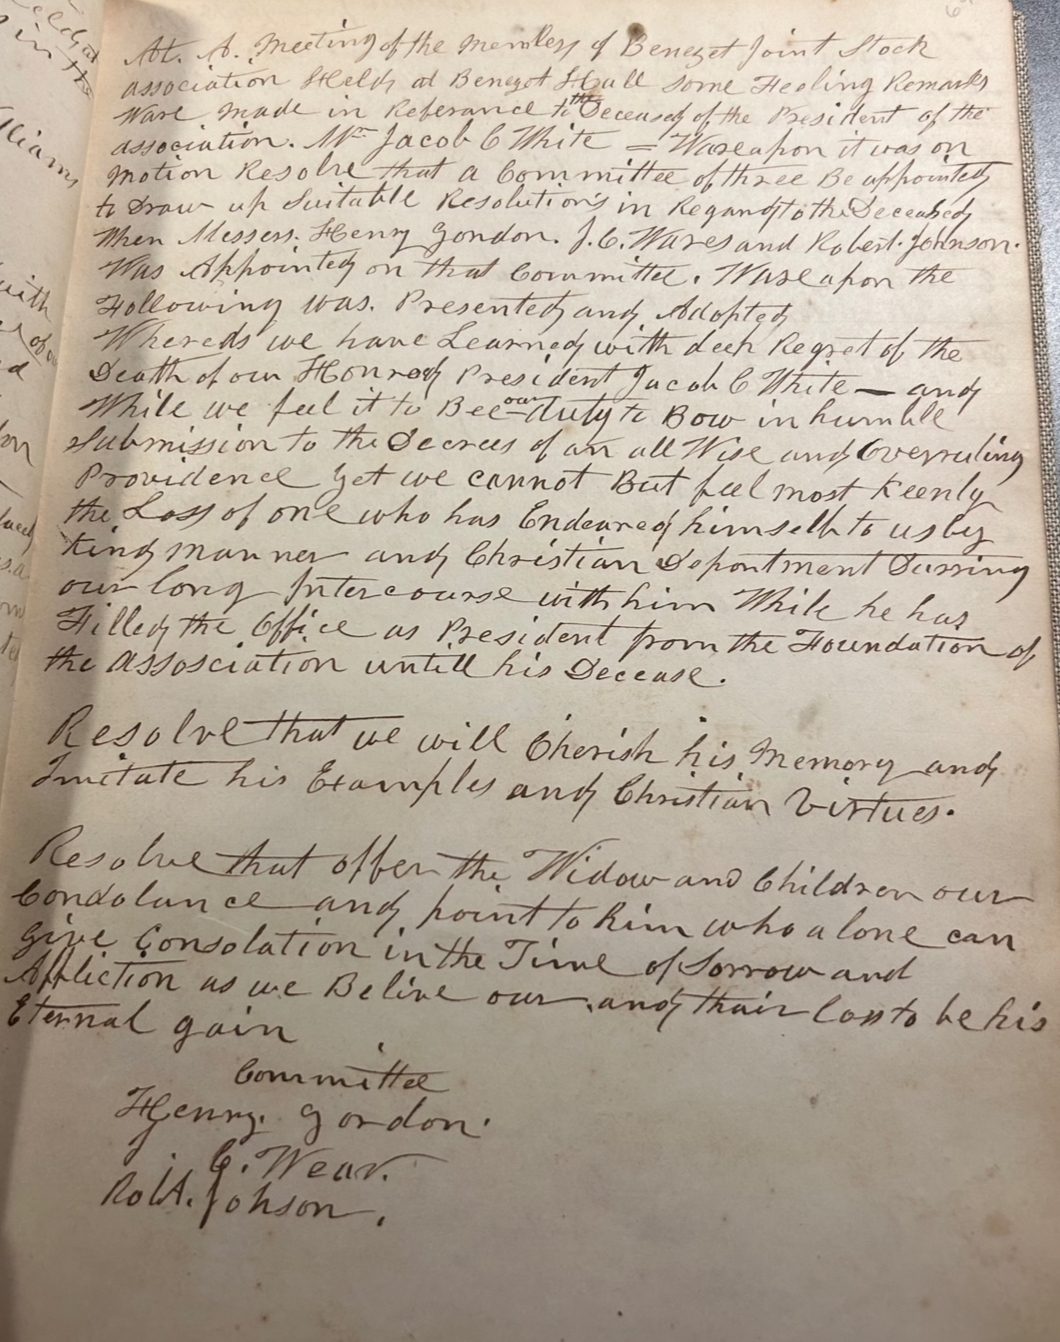 At. A. Meeting of the members of Benezet Joint Stock
association Held at Benezet Hall some Feeling Remarks
Ware made in Referance to the Deceased of the President of the
association. Mr Jacob C White = Wareapon it was on
motion Resolve that a Committee of three Be appointed
to Draw up Suitable Resolutions in Regard to the Deceased
When Messers. Henry Gordon. J. C. Wares and Robert. Johnson.
Was Appointed on that Committee. Wareapon the
Following was. Presented and Adopted
Whereas we have Learned with deep Regret of the
Death of our Honred President Jacob C White — and
While we feel it to Bee our duty to Bow in humble
Submission to the Decrees of an all Wise and Overruling
Providence yet we cannot But feel most Keenly
the Loss of one who has Endeared himself to us by
Kind manner and Christian Deportment Durring
our long Intercourse with him While he has
Filled the Office as President from the Foundation of
the assosciation untill his Decease.
Resolve that we will Cherish his Memory and
Imitate his Examples and Christian Virtues.
Resolve that offer the Widow and Children our
Condolance and point to him who alone can
give Consolation in the Time of Sorrow and
Affliction as we Belive our and thair loss to be his
Eternal gain
Committee
Henry. Gordon.
J. C. Wear.
Robt. Johson.